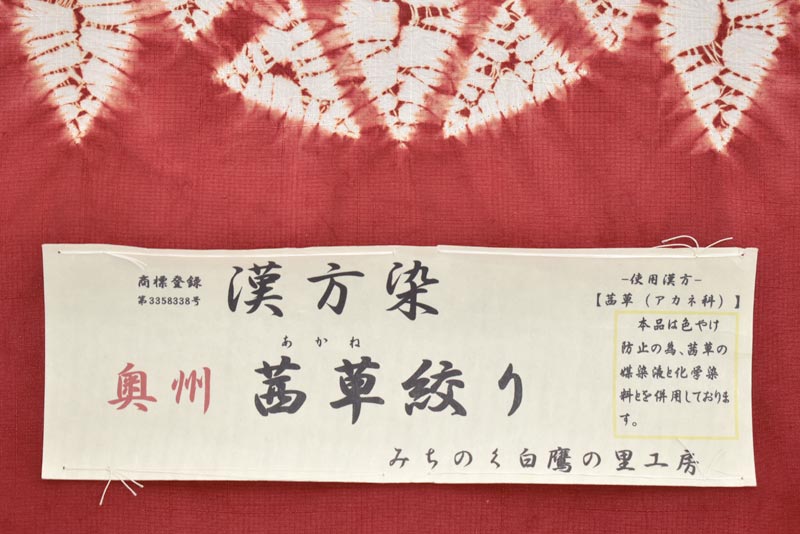 商標登録
第3358338号
漢方染
あかね
奥州 茜草絞り
みちのく白鷹の里工房
−使用漢方−
【茜草（アカネ科）】
本品は色やけ
防止の為、茜草の
媒染液と化学染
料とを併用しておりま
す。